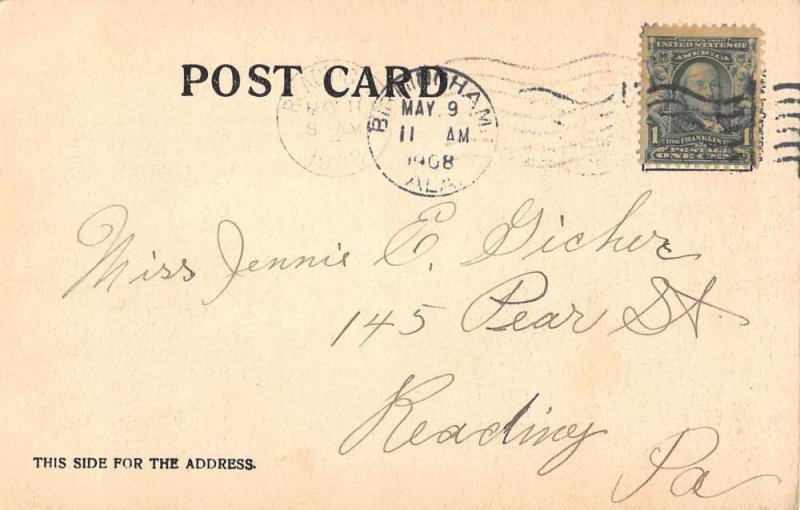 POST CARD
BIRMINGHAM
MAY 9
11 AM
1908
ALA
UNITED STATES OF
AMERICA
1 FRANKLIN 1
POSTAGE
ONE CENT
Miss Jennie E. Gicher
145 Pear St
Reading
Pa
THIS SIDE FOR THE ADDRESS.